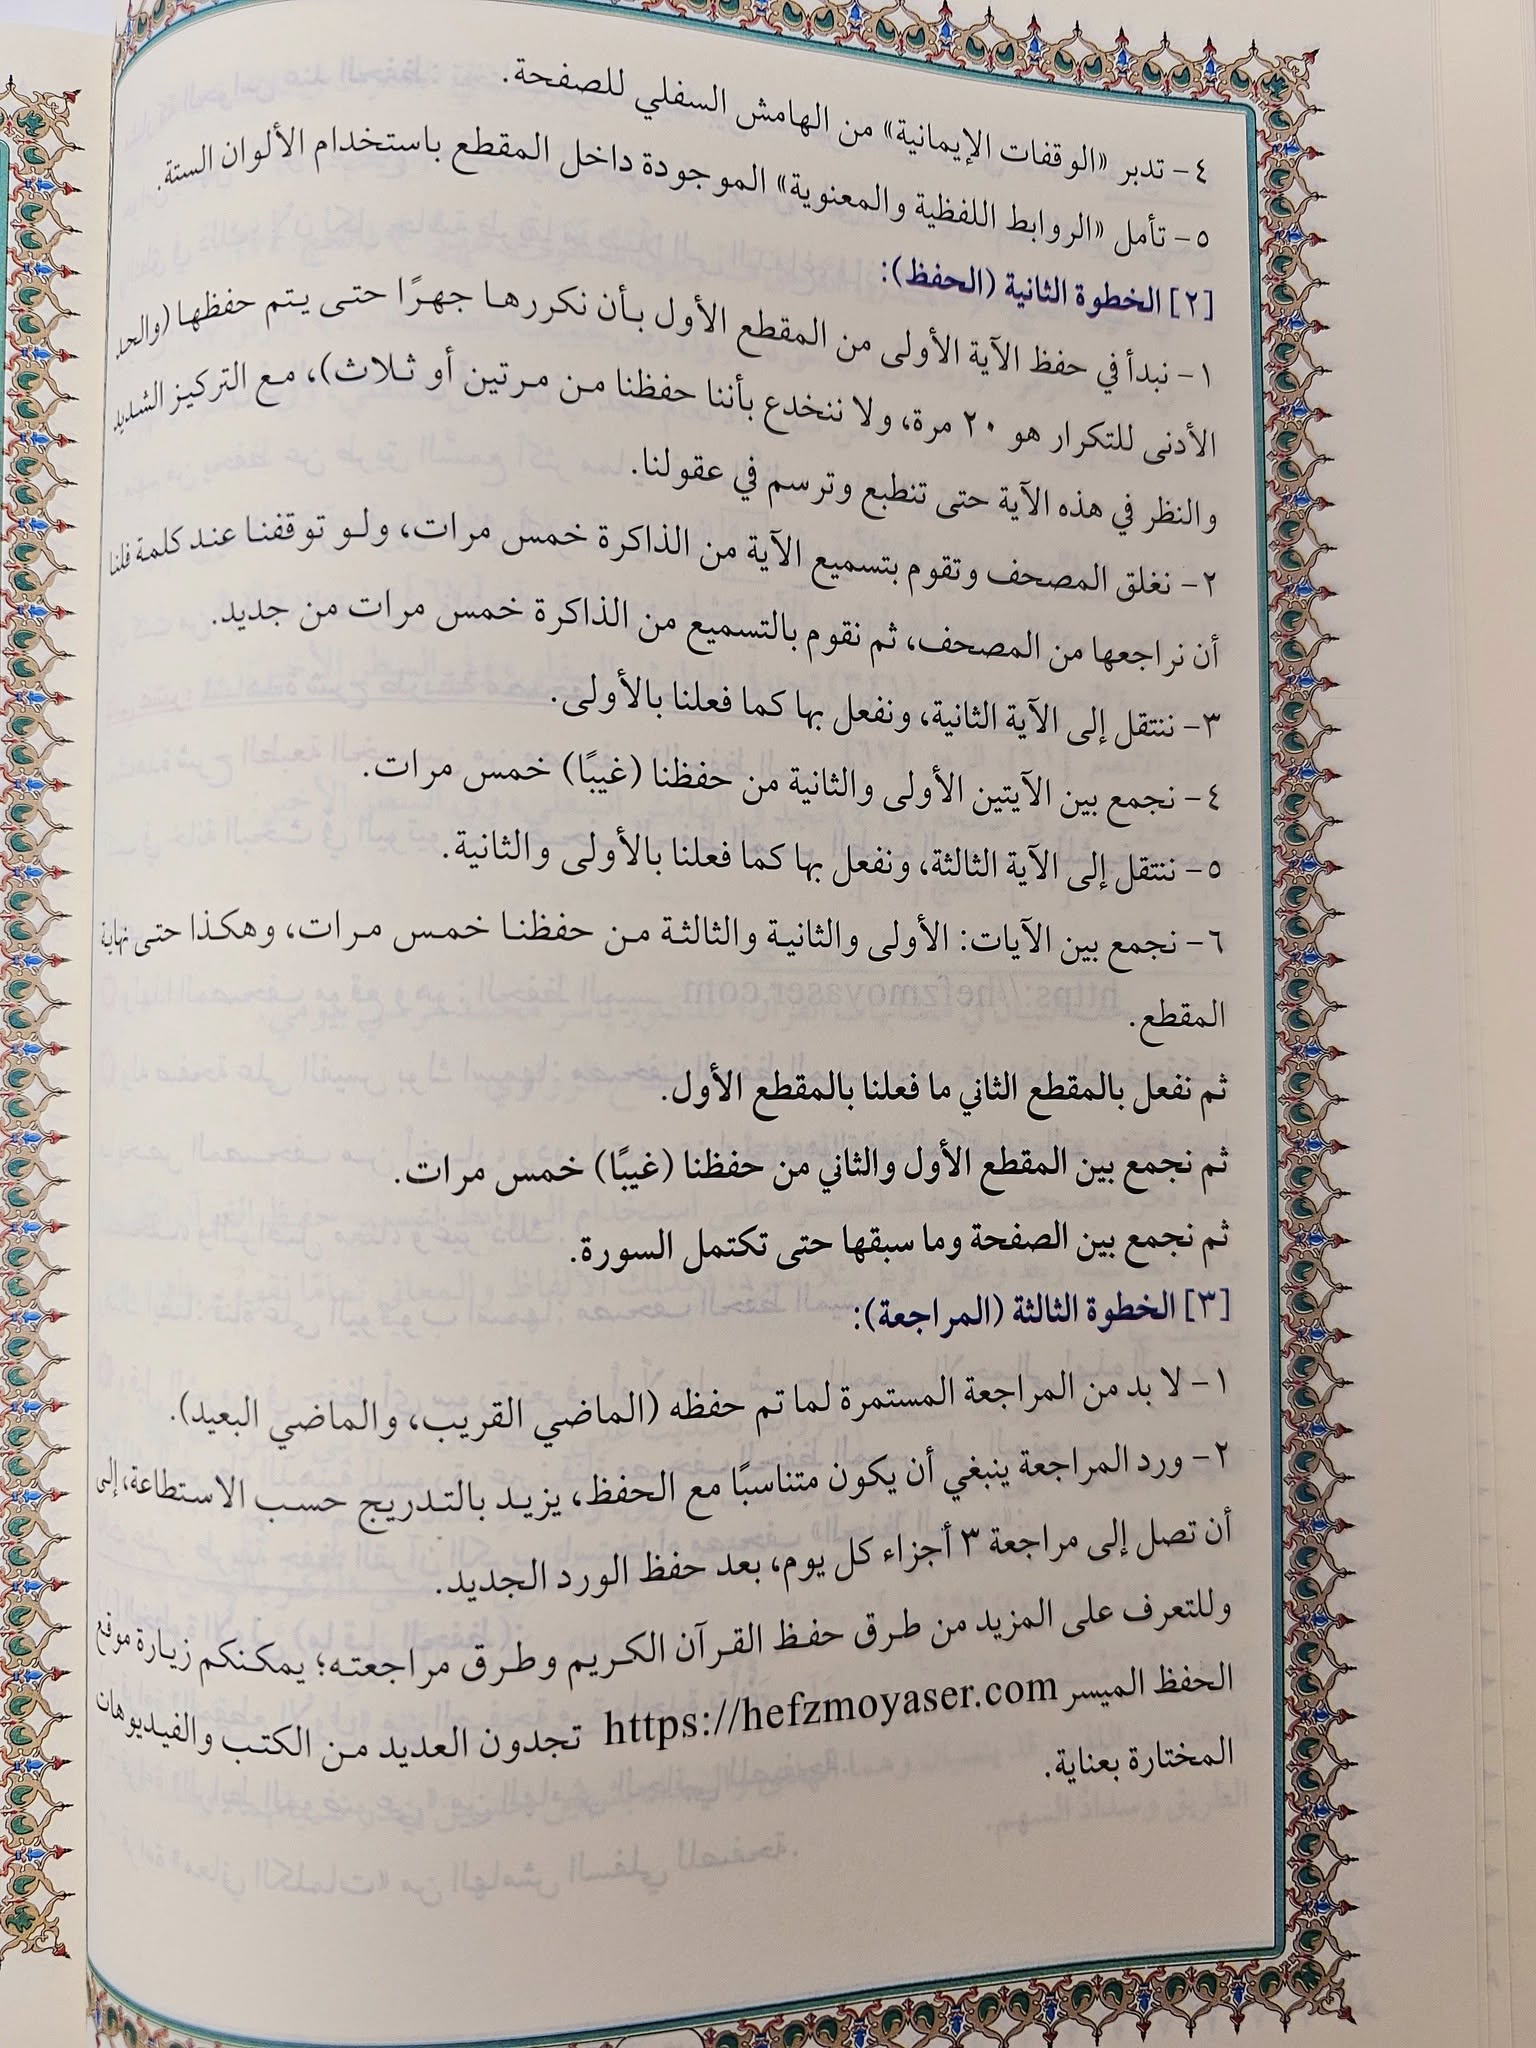 ٤- تدبر «الوقفات الإيمانية» من الهامش السفلي للصفحة.
٥- تأمل «الروابط اللفظية والمعنوية» الموجودة داخل المقطع باستخدام الألوان الستة.
[٢] الخطوة الثانية (الحفظ):
١- نبدأ في حفظ الآية الأولى من المقطع الأول بأن نكررها جهرًا حتى يتم حفظها (والحد
الأدنى للتكرار هو ٢٠ مرة، ولا ننخدع بأننا حفظنا من مرتين أو ثلاث)، مع التركيز الشديد
والنظر في هذه الآية حتى تنطبع وترسم في عقولنا.
٢- نغلق المصحف وتقوم بتسميع الآية من الذاكرة خمس مرات، ولو توقفنا عند كلمة فلنا
أن نراجعها من المصحف، ثم نقوم بالتسميع من الذاكرة خمس مرات من جديد.
٣- ننتقل إلى الآية الثانية، ونفعل بها كما فعلنا بالأولى.
٤- نجمع بين الآيتين الأولى والثانية من حفظنا (غيبًا) خمس مرات.
٥- ننتقل إلى الآية الثالثة، ونفعل بها كما فعلنا بالأولى والثانية.
٦- نجمع بين الآيات: الأولى والثانية والثالثة من حفظنا خمس مرات، وهكذا حتى نهاية
المقطع.
ثم نفعل بالمقطع الثاني ما فعلنا بالمقطع الأول.
ثم نجمع بين المقطع الأول والثاني من حفظنا (غيبًا) خمس مرات.
ثم نجمع بين الصفحة وما سبقها حتى تكتمل السورة.
[٣] الخطوة الثالثة (المراجعة):
١- لا بد من المراجعة المستمرة لما تم حفظه (الماضي القريب، والماضي البعيد).
٢- ورد المراجعة ينبغي أن يكون متناسبًا مع الحفظ، يزيد بالتدريج حسب الاستطاعة، إلى
أن تصل إلى مراجعة ٣ أجزاء كل يوم، بعد حفظ الورد الجديد.
وللتعرف على المزيد من طرق حفظ القرآن الكريم وطرق مراجعته؛ يمكنكم زيارة موقع
الحفظ الميسر https://hefzmoyaser.com تجدون العديد من الكتب والفيديوهات
المختارة بعناية.